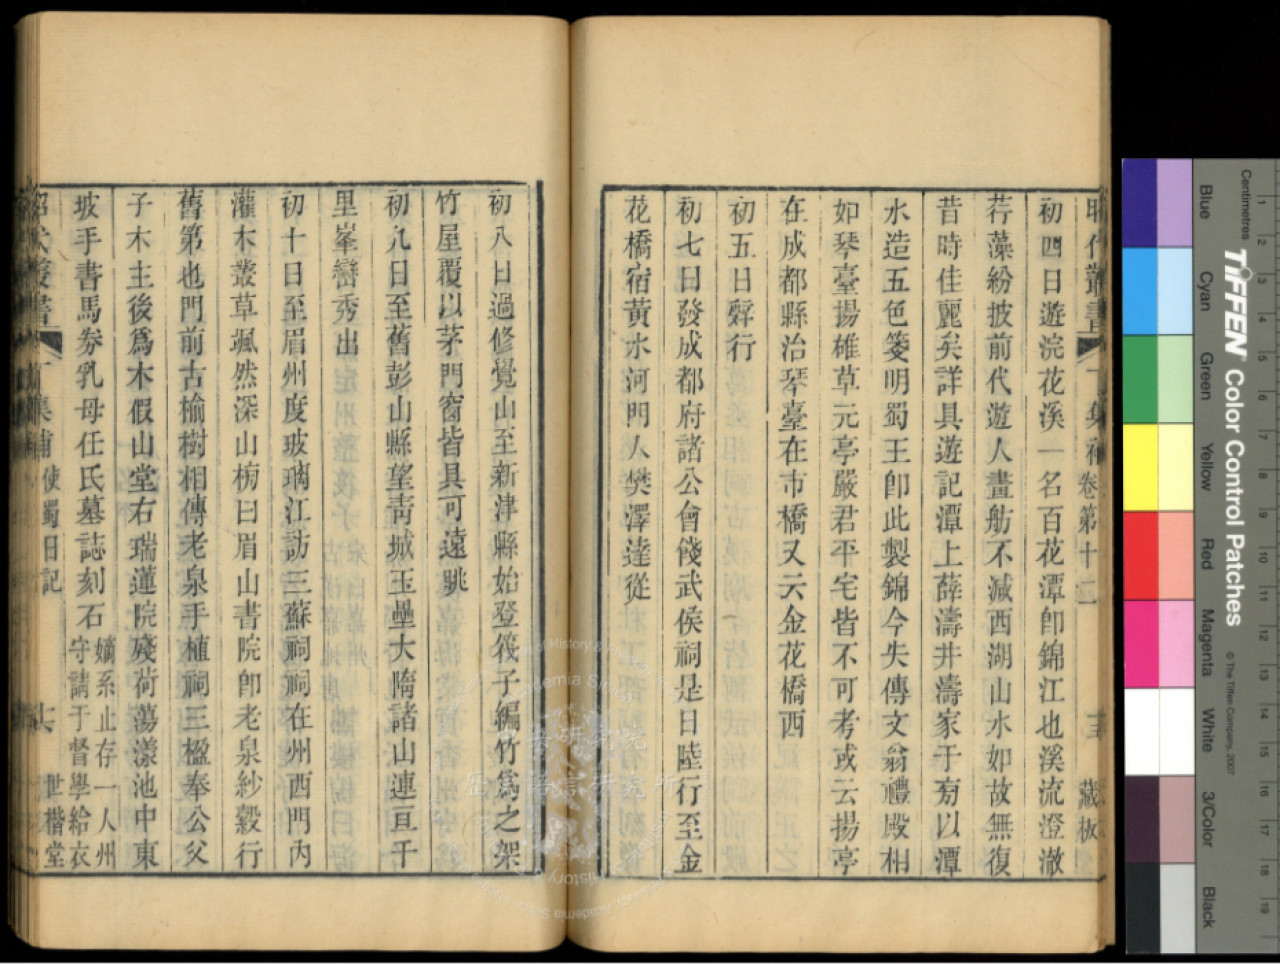 昭代叢書 丁集補卷第十二 藏板
初四日遊浣花溪一名百花潭卽錦江也溪流澄澈
荇藻紛披前代遊人畫舫不減西湖山水如故無復
昔時佳麗矣詳具遊記潭上薛濤井濤家于旁以潭
水造五色箋明蜀王卽此製錦今失傳文翁禮殿相
如琴臺揚雄草元亭嚴君平宅皆不可考或云揚亭
在成都縣治琴臺在市橋又云金花橋西
初五日辭行
初七日發成都府諸公會餞武侯祠是日陸行至金
花橋宿黃水河門人樊澤達從
初八日過修覺山至新津縣始登筏子編竹爲之架
竹屋覆以茅門窗皆具可遠眺
初九日至舊彭山縣望靑城玉壘大隋諸山連亘千
里峯巒秀出
初十日至眉州度玻璃江訪三蘇祠祠在州西門內
灌木叢草颯然深山榜曰眉山書院卽老泉紗縠行
舊第也門前古楡樹相傳老泉手植祠三楹奉公父
子木主後爲木假山堂右瑞蓮院殘荷蕩漾池中東
坡手書馬券乳母任氏墓誌刻石嫡系止存一人州
守請于督學給衣
昭代叢書 丁集補 使蜀日記 世楷堂
Centimetres
TIFFEN Color Control Patches
© The Tiffen Company, 2007
Blue
Cyan
Green
Yellow
Red
Magenta
White
3/Color
Black
1 2 3 4 5 6 7 8 9 10 11 12 13 14 15 16 17 18 19